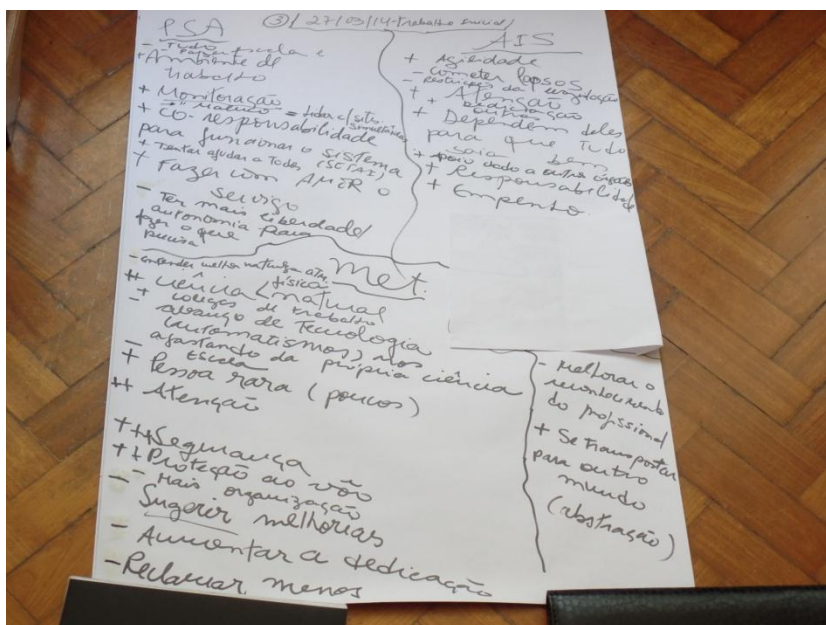 ③ 27/03/14 - Trabalho
PSA
- Tudo escala e
+ Ambiente de
trabalho
+ Monitoração
+ CO-responsabilidade
para funcionar o sistema
+ Tentar ajudar a todos
+ Fazer com AMOR o
serviço
- Ter mais liberdade/
autonomia para
fazer o que
precisa
AIS
+ Agilidade
- Cometer lapsos
+ Atenção
+ Dependem deles
para que tudo
saia bem
+ Apoio dado a outros órgãos
+ Responsabilidade
+ Empenho
Met.
- entender melhor natureza
física
++ Ciência natural
+ colegas de trabalho
- avanço de Tecnologia
(automatismos) nos
afastando da própria ciência
- Escala
+ Pessoa rara (poucos)
++ Atenção
+++ Segurança
++ Proteção ao vôo
- Mais organização
- Sugerir melhorias
- Aumentar a dedicação
- Reclamar menos
- Melhorar o
reconhecimento
do profissional
+ Se transportar
para outro
mundo
(abstração)